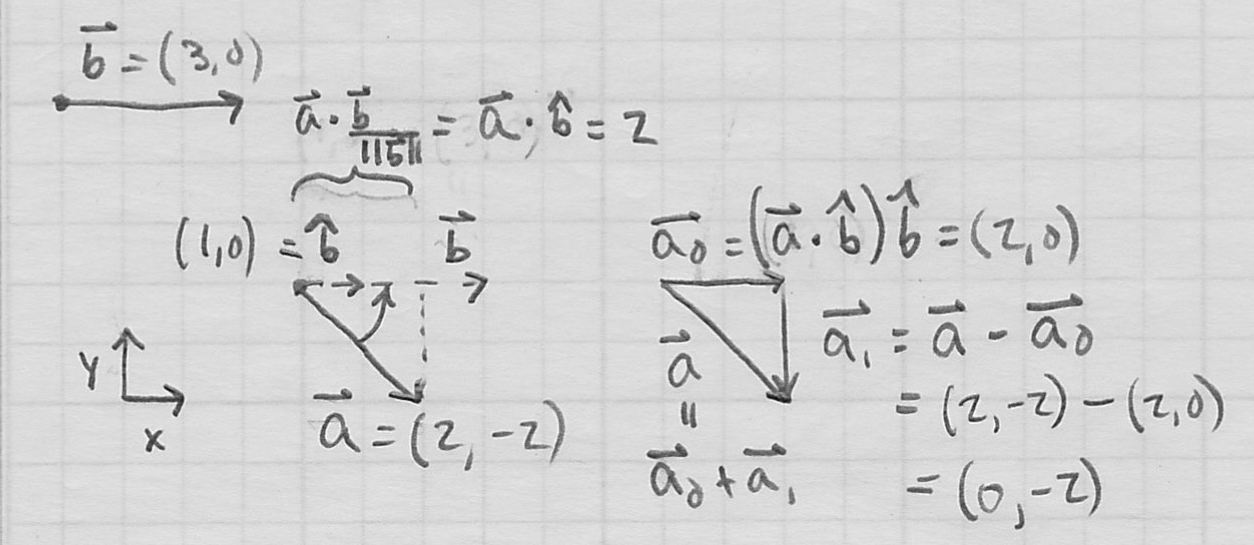 b⃗ = (3,0)
a⃗ · b⃗/‖b⃗‖ = a⃗ · b̂ = 2
(1,0) = b̂
b⃗
a⃗ = (2,-2)
Y
x
a⃗₀ = (a⃗ · b̂) b̂ = (2,0)
a⃗
=
a⃗₀ + a⃗₁
a⃗₁ = a⃗ - a⃗₀
= (2,-2) - (2,0)
= (0,-2)